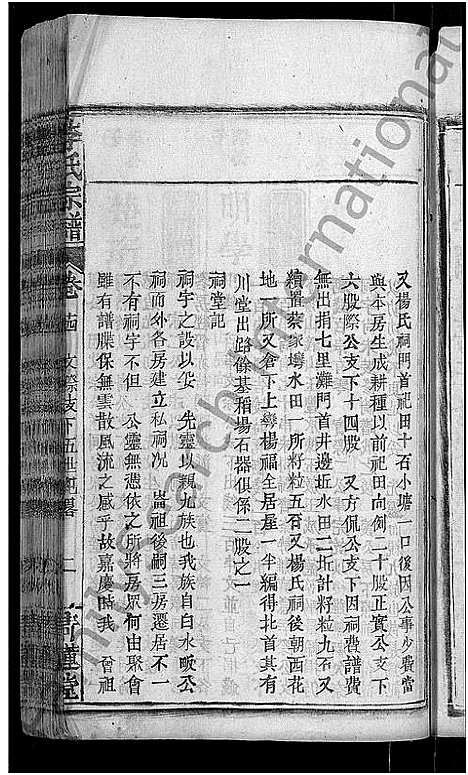 又楊氏祠門首祀田十石小塘一口後因公事少費當
與本房生成耕種以前祀田向例二十股正實公支下
六股際公支下十四股 又方侃公支下因祠費譜費
無出捐七里灘門首井邊坵水田二坵計籽粒九石又
續置蔡家塆水田一所籽粒五石又楊氏祠後朝西花
地一所又倉下上 楊福全居屋一半編得北首其有
川堂出路餘基稻場石器俱係二股之一
祠堂記
祠宇之設以妥 先靈以親九族也我族自白水畈公
祠而外各房建立私祠況 崙祖後嗣三房遷居不一
不有祠宇不但 公靈無憑依之所將房眾何由聚會
雖有譜牒保無雲散風流之感乎故嘉慶時我 晉祖
李氏宗譜 卷 文際支下五世
familysearch international